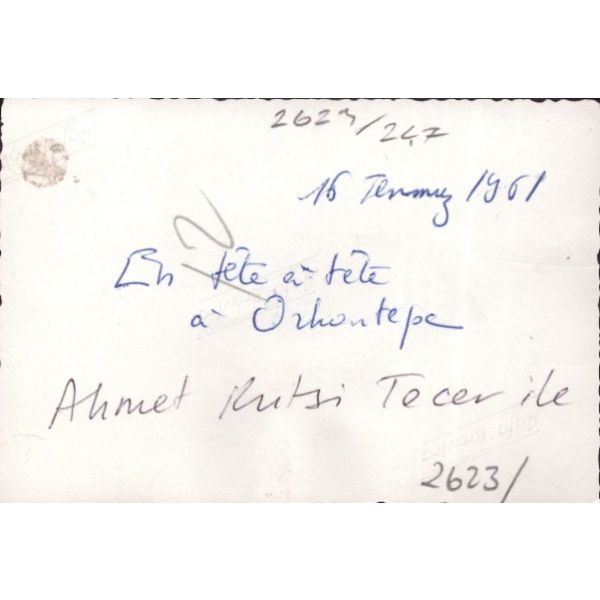 2623/247
16 Temmuz 1961
12
En tête à tête
à Orhantepe
Ahmet Kutsi Tecer ile
2623/